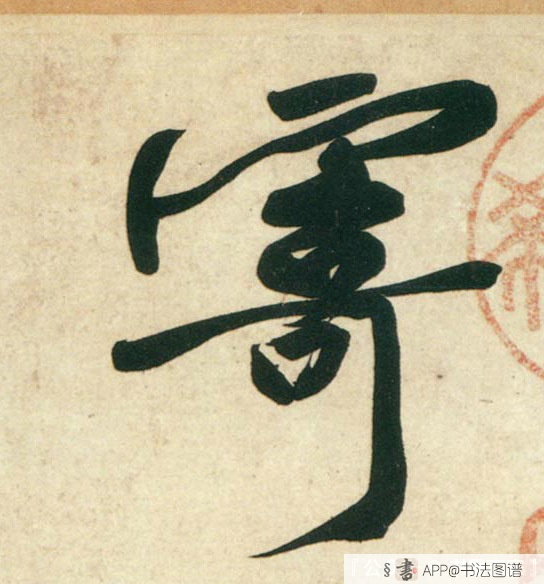 寄
§書 APP@书法图谱